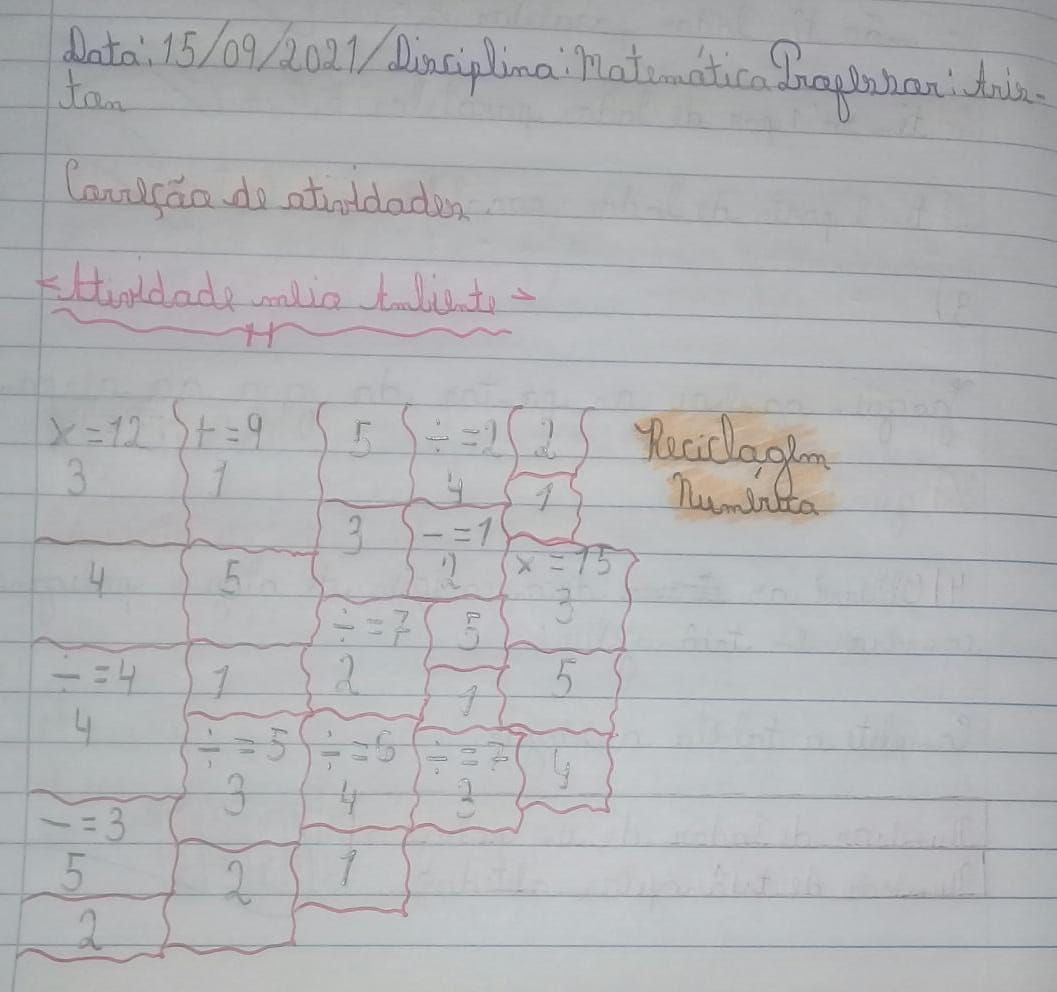 Data: 15/09/2021/Disciplina: Matemática Professor: Aris-
ton
Correção de atividades
<Atividade meio Ambiente>
x=12 +=9 5 ÷=2 2
Reciclagem
3 1 4 1
Numérica
3 -=1
4 5 2 x=15
3
÷=7 5
÷=4 1 2 5
1
4 ÷=5 ÷=6 ÷=7 4
3 4 3
-=3
5 2 1
2